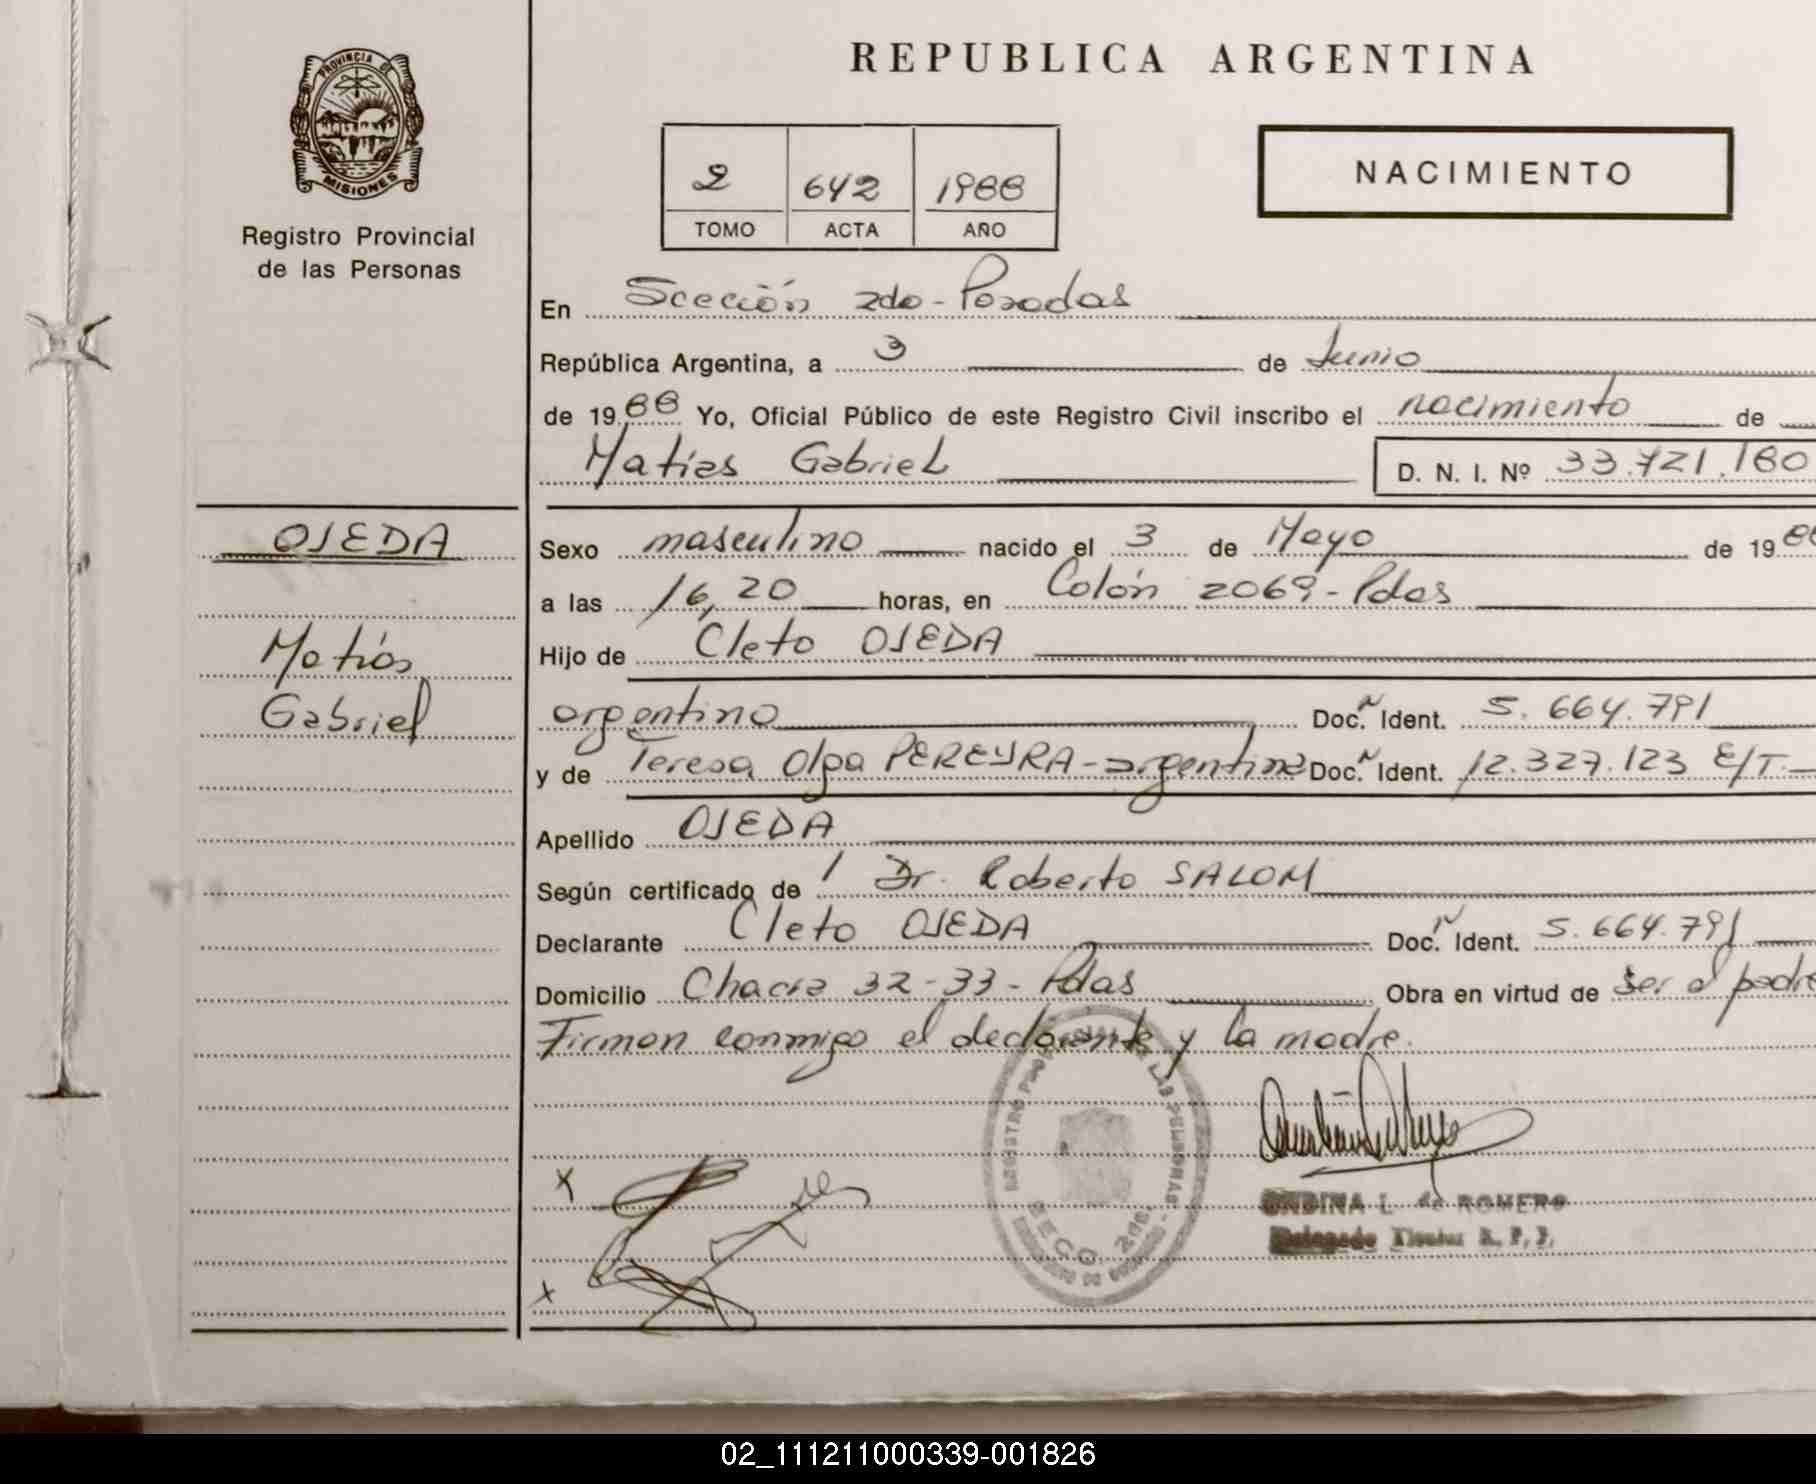 PROVINCIA DE
MISIONES
Registro Provincial
de las Personas
REPUBLICA ARGENTINA
2 642 1988
TOMO ACTA AÑO
NACIMIENTO
En Sección 2da - Posadas
República Argentina, a 3 de Junio
de 1988 Yo, Oficial Público de este Registro Civil inscribo el nacimiento de
Matías Gabriel D. N. I. Nº 33.721.180
OJEDA
Matías
Gabriel
Sexo masculino nacido el 3 de Mayo de 19
a las 16,20 horas, en Colón 2069 - Pdas
Hijo de Cleto OJEDA
argentino Doc. Ident. 5.664.791
y de Teresa Olga PEREYRA - argentina Doc. Ident. 12.327.123 E/T.
Apellido OJEDA
Según certificado de 1 Dr. Roberto SALOM
Declarante Cleto OJEDA Doc. Ident. 5.664.791
Domicilio Chacra 32-33 - Pdas Obra en virtud de ser el padre
Firman conmigo el declarante y la madre.
ONDINA L. de ROMERO
Delegada Titular R. P. P.
02_111211000339-001826